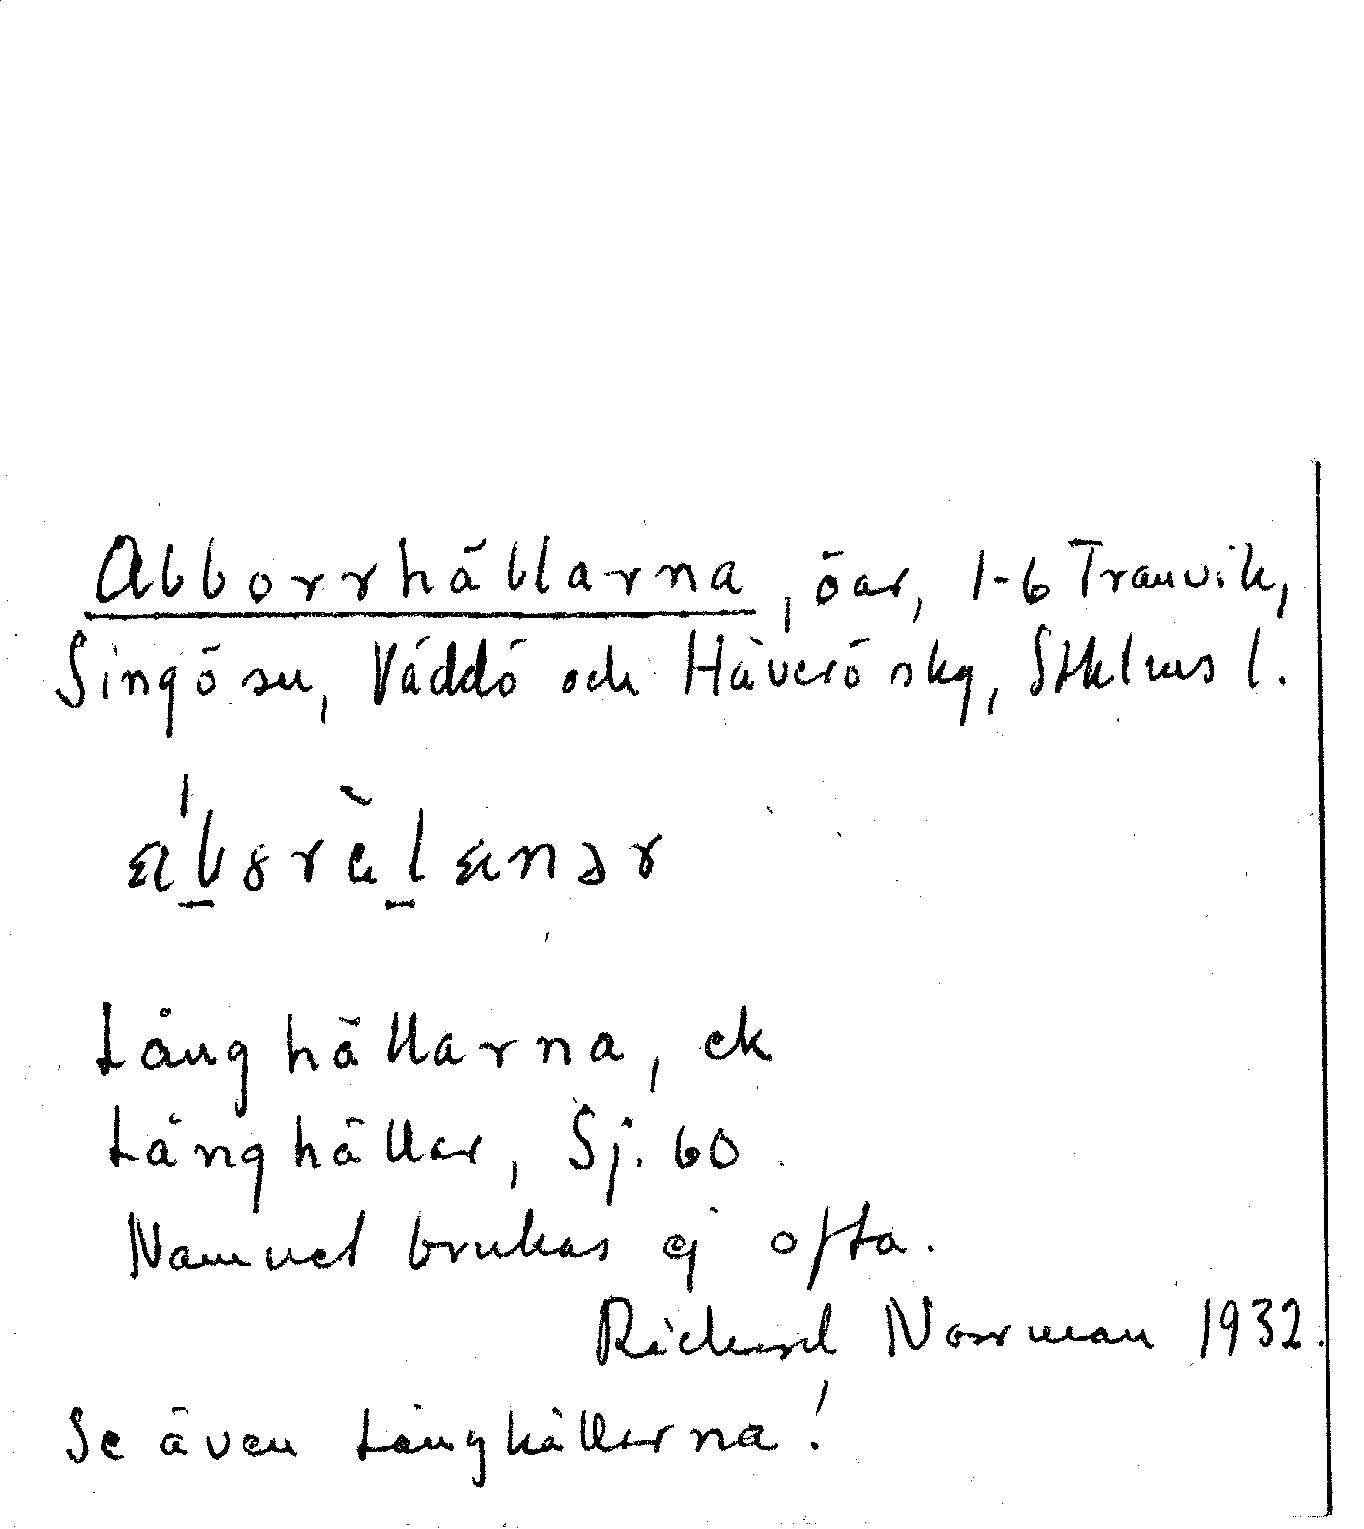 Abborrhällarna, öar, 1-6 Tranvik,
Singö sn, Väddö och Häverö skg, Sthlms l.
Långhällarna, ek
Långhällar, Sj. 60
Namnet brukas ej ofta.
Rickard Norrman 1932.
Se även Långhällarna!